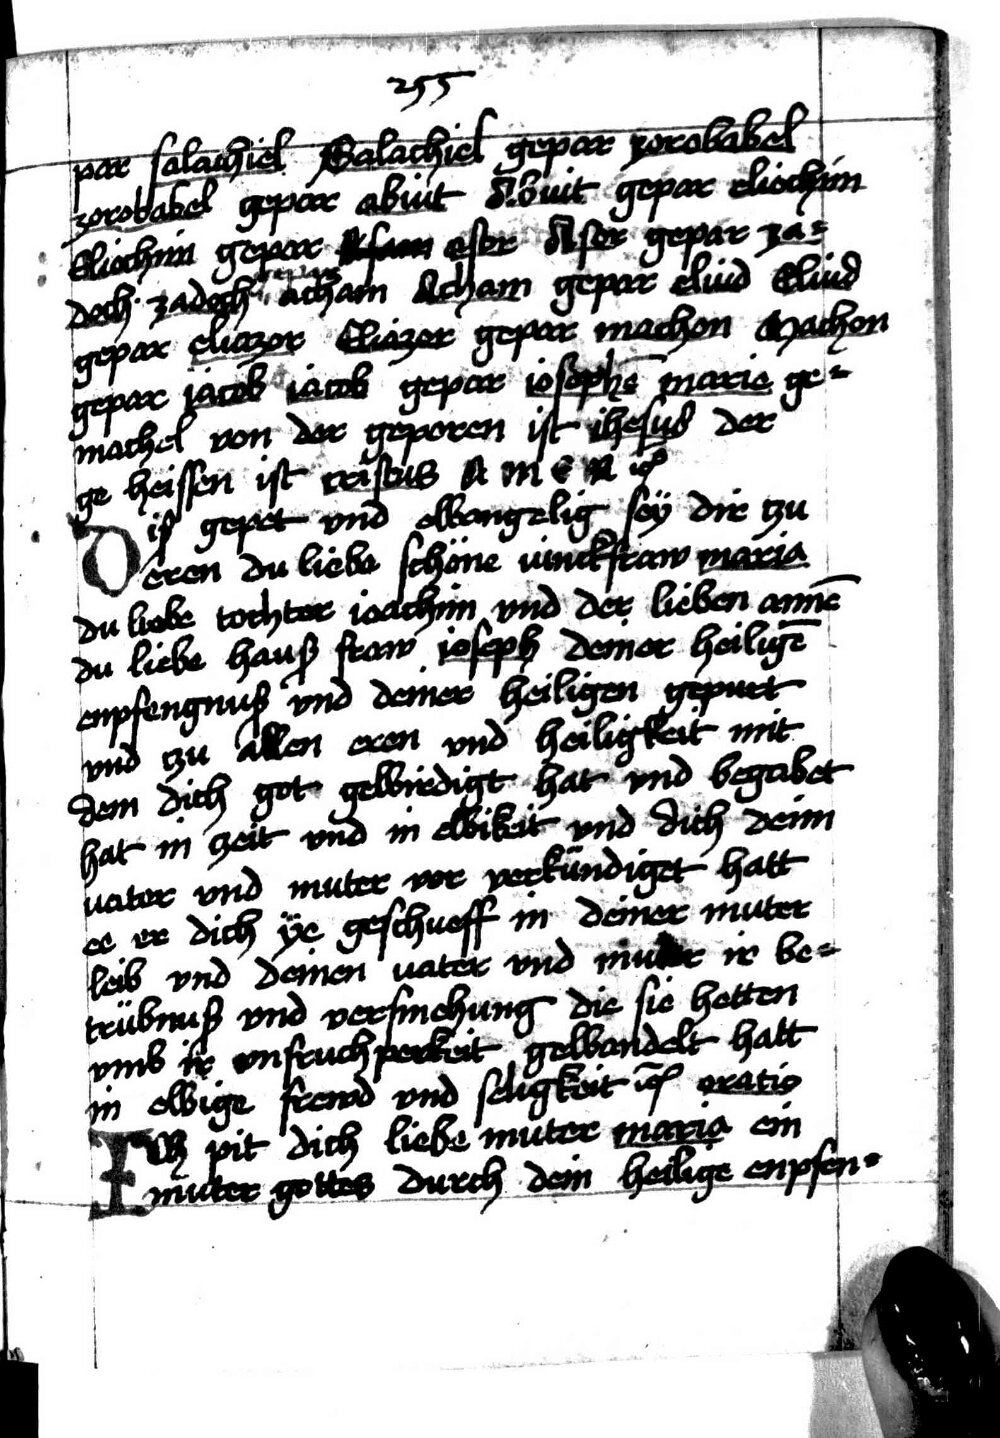 255
par salachiel Salachiel gepar zorobabel
zorobabel gepar abiut Abiut gepar eliochim
Eliochim gepar asor Asor gepar za=
doch zadoch gepar acham Acham gepar eliud Eliud
gepar eliazor Eliazor gepar machon Machon
gepar jacob iacob gepar iosophē maria ge=
machel von der geporen ist ihesus der
ge heissen ist cristus A M E N
Diß gepet vnd ewangelig sey dir tzu
eren du liebe schöne iunckfraw maria
du liebe tochter ioachim vnd der lieben annē
du liebe hauß fraw ioseph deiner heiligē
enpfengnuß vnd deiner heiligen gepurt
vnd tzu allen eren vnd heiligkeit mit
dem dich got gewirdigt hat vnd begabet
hat in zeit vnd in ewikeit vnd dich deim
uater vnd muter vor verkündiget hatt
ee er dich ÿe geschueff in deiner muter
leib vnd deinen uater vnd muter ir be=
trübnuß vnd versmehung die sie hetten
vmb ir vnfruchperkeit gewandelt hatt
in ewige frewd vnd seligkeit oratio
Ich pit dich liebe muter maria ein
muter gottes durch dein heilige enpfen=